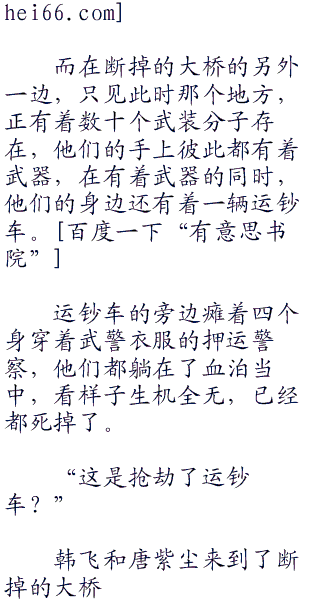 hei66.com]
而在断掉的大桥的另外
一边，只见此时那个地方，
正有着数十个武装分子存
在，他们的手上彼此都有着
武器，在有着武器的同时，
他们的身边还有着一辆运钞
车。[百度一下“有意思书
院”]
运钞车的旁边瘫着四个
身穿着武警衣服的押运警
察，他们都躺在了血泊当
中，看样子生机全无，已经
都死掉了。
“这是抢劫了运钞
车？”
韩飞和唐紫尘来到了断
掉的大桥